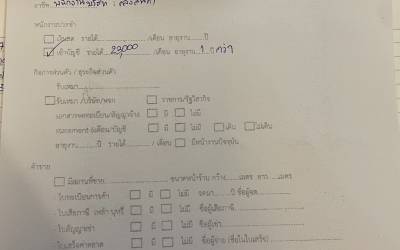 อาชีพ พนักงานบริษัท :
พนักงานประจำ
เงินสด รายได้............/เดือน อายุงาน.......ปี
เข้าบัญชี รายได้ 22,000 /เดือน อายุงาน 1 ปี กว่า
กิจการส่วนตัว / ธุรกิจส่วนตัว
รับเหมา
รับเหมา /บริษัท/หจก ราชการ/รัฐวิสาหกิจ
เอกสารจดทะเบียน/สัญญาจ้าง มี ไม่มี
statement ย้อน/บัญชี มี ไม่มี เดิน ไม่เดิน
อายุงาน........ปี รายได้........../เดือน มีหน้างานปัจจุบัน
ค้าขาย
มีสถานที่ขาย ขนาดหน้าร้าน กว้าง......เมตร ยาว ....เมตร
- ใบทะเบียนการค้า มี ไม่มี จดมา......ปี ชื่อผู้จด
- ใบเสียภาษี เหล้า บุหรี่ มี ไม่มี ชื่อผู้เสียภาษี
- ใบสัญญาเช่า มี ไม่มี ชื่อผู้เช่า
- ใบเสร็จค่าตลาด มี ไม่มี ชื่อผู้จ่าย (ชื่อในใบเสร็จ)